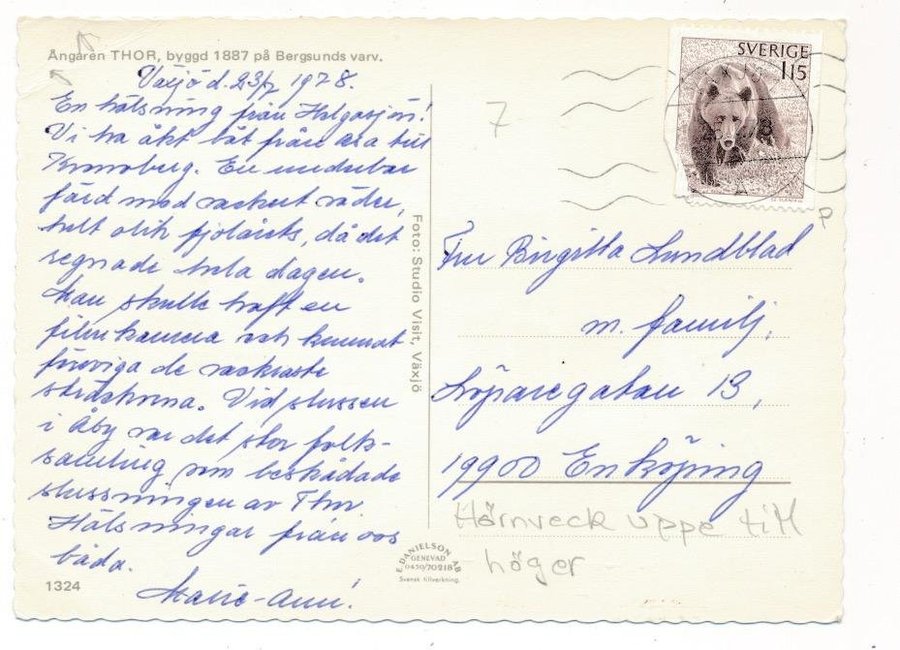 Ångaren THOR, byggd 1887 på Bergsunds varv.
Växjö d. 23/7 1978.
En hälsning från Helgasjön!
Vi ha åkt båt från till
Kronoberg. En underbar
färd med vackert väder,
helt olik fjolårets, då det
regnade hela dagen.
Man skulle haft en
filmkamera och kunnat
föreviga de vackraste
sträckorna. Vid slussen
i Åby var det stor folk-
samling som beskådade
slussningen av Thor.
Hälsningar från oss
båda.
Marie-Ann!
1324
Foto: Studio Visit, Växjö
E. DANIELSON AB
GENEVAD
0430/70218
Svensk tillverkning.
7
SVERIGE
115
Fru Birgitta Lundblad
m. familj.
Löparegatan 13,
19900 Enköping
Hörnveck uppe till
höger